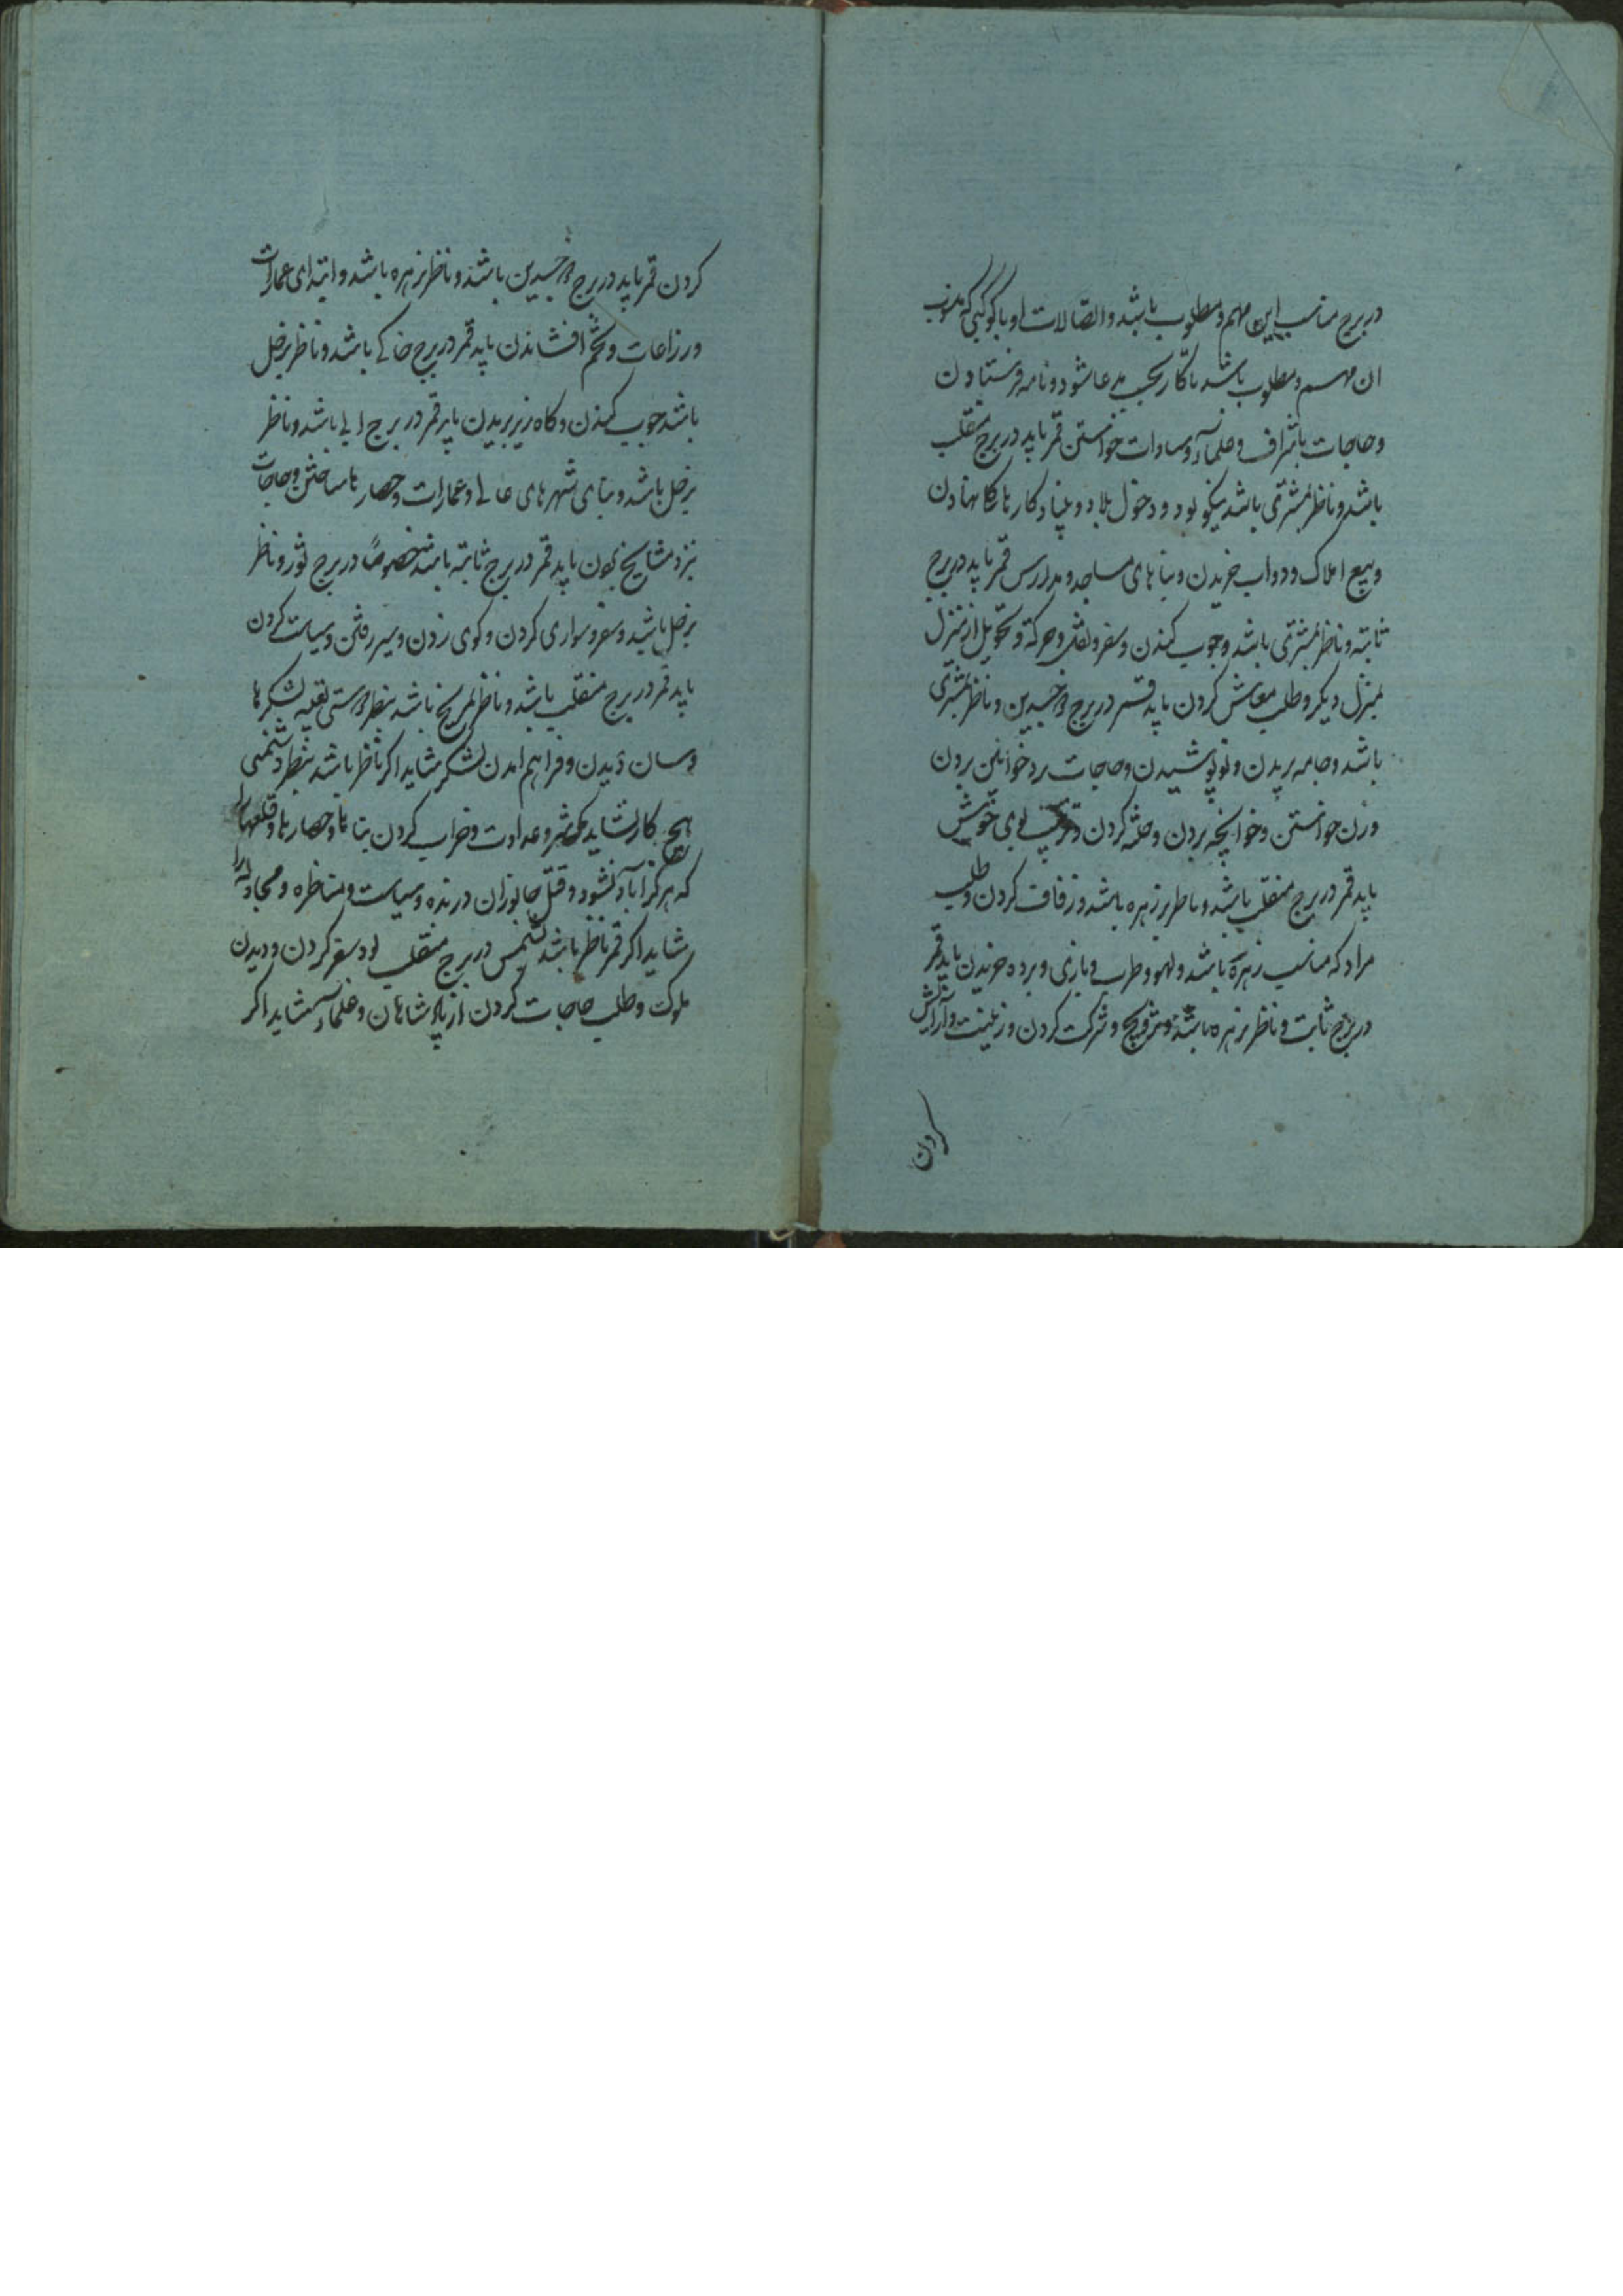 در برج مناسب این مهم و مطلوب باشد و اتصالات او با کوکبی که منسوب
ان مهم و مطلوب باشد تا کار بحسب مدعا شود و نامه فرستادن
و حاجات باشراف و علماء و سادات خواستن قمر باید در برج منقلب
باشد و ناظر بمشتری باشد نیکو بود و دخول بلاد و بنیاد کارها نهادن
و بیع املاک و دواب خریدن و بناهای مساجد و مدارس قمر باید در برج
ثابته و ناظر بمشتری باشد و جوب کندن و سفر و نقل و حرکة و تحویل از منزل
بمنزل دیکر و طلب معاش کردن باید قمر در برج ذوجسدین و ناظر بمشتری
باشد و جامه بریدن و نو پوشیدن و حاجات بر خواتین بردن
و زن خواستن و خوانچه بردن و ختنه کردن و بوی خوش
باید قمر در برج منقلب باشد و ناظر بزهره باشد و زفاف کردن و طلب
مراد که مناسب زهره باشد و لهو و طرب و بازی و برده خریدن باید قمر
در برج ثابت و ناظر بزهره باشد و تزویج و شرکت کردن و زینت و آرایش
کردن
کردن قمر باید در برج ذوجسدین باشد و ناظر بزهره باشد و ابتدای عمارات
و زراعات و تخم افشاندن باید قمر در برج خاکے باشد و ناظر بزحل
باشد جوب کندن و کاه زیر بریدن باید قمر در برج ابی باشد و ناظر
بزحل باشد و بنای شهرهای عالی و عمارات و حصارها ساختن و حاجات
نزد مشایخ بودن باید قمر در برج ثابته باشد خصوصاً در برج ثور و ناظر
بزحل باشد و سفر و سواری کردن و کوی زدن و سیر رفتن و سیاست کردن
باید قمر در برج منقلب باشد و ناظر بمریخ باشد بنظر دوستی تعبیه لشکرها
و سان دیدن و فراهم امدن لشکر شاید اکر ناظر باشد بنظر دشمنی
هیچ کار نشاید مکر شر و عداوت و خراب کردن بناها و حصارها و قلعها را
که هرکز آباد نشود و قتل جانوران درنده و سیاست و مناظره و مجادله را
شاید اکر قمر ناظر باشد بشمس در برج منقلب بود سفر کردن و دیدن
ملوک و طلب حاجات کردن از پادشاهان و علماء شاید اکر